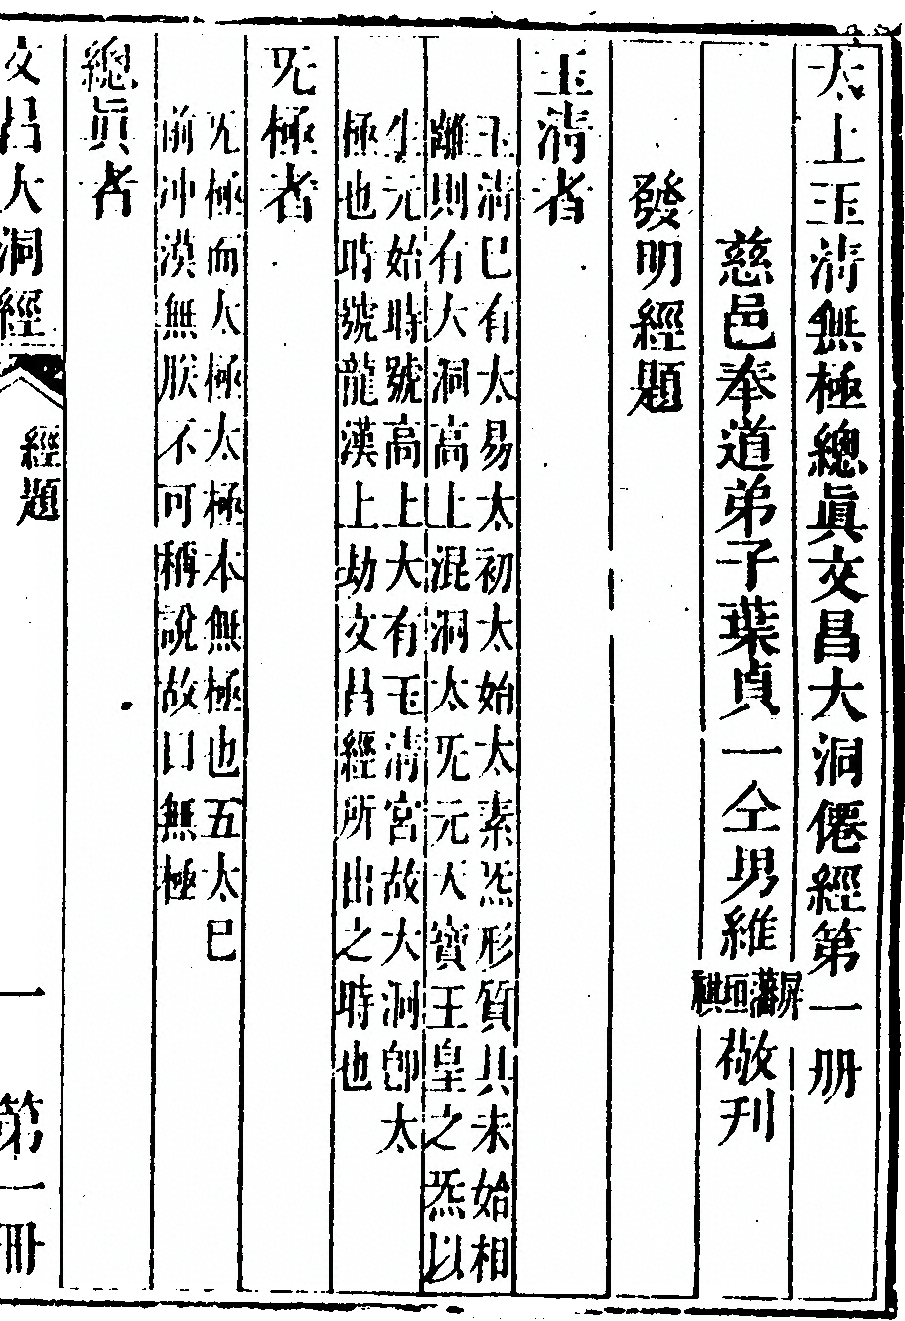 太上玉淸無極總眞文昌大洞僊經第一册
慈邑奉道弟子葉貞一仝男維屏藩垣祺敬刊
發明經題
玉淸者
玉淸巳有太易太初太始太素炁形質具未始相
離則有大洞高上混洞太无元天寶王皇之炁以
生元始時號高上大有玉淸宮故大洞卽太
極也時號龍漢上劫文昌經所出之時也
无極者
无極而太極太極本無極也五太巳
前沖漠無朕不可稱說故曰無極
總眞者
文昌大洞經 經題 一 第一册